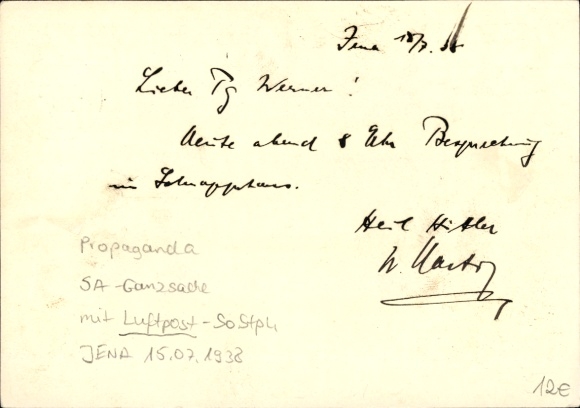 Jena 15/7. 38
Lieber Pg Werner!
Heute abend 8 Uhr Besprechung
im
Heil Hitler
W.
Propaganda
SA-Ganzsache
mit Luftpost-SoStpl
JENA 15.07.1938
12€